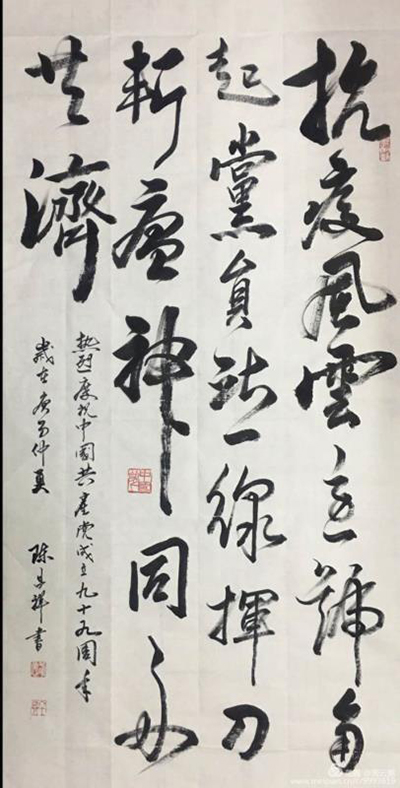 抗疫風雲急號角
起黨員站一線揮刀
斬瘟神同舟
共濟
熱烈慶祝中國共產党成立九十九周年
歲在庚子仲夏 陳 祥書